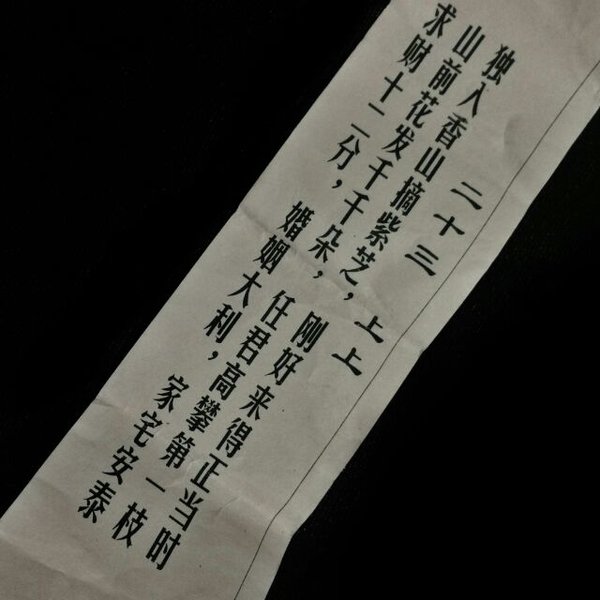 二十三 上上
独入香山摘紫芝，刚好来得正当时
山前花发千千朵，任君高攀第一枝
求财十二分，婚姻大利，家宅安泰